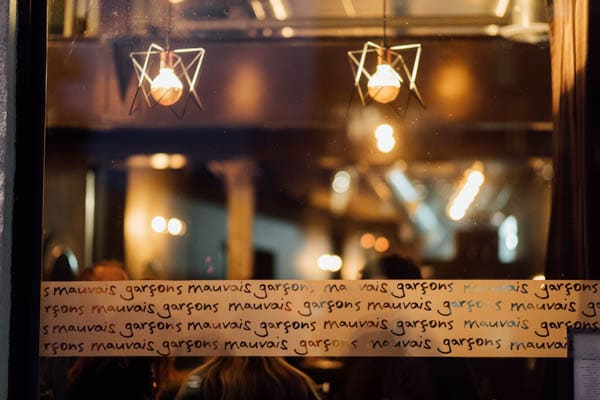 s mauvais garçons mauvais garçons mauvais garçons mauvais garçons
rçons mauvais garçons mauvais garçons mauvais garçons mauvais
s mauvais garçons mauvais garçons mauvais garçons mauvais garçons
rçons mauvais garçons mauvais garçons mauvais garçons mauvais